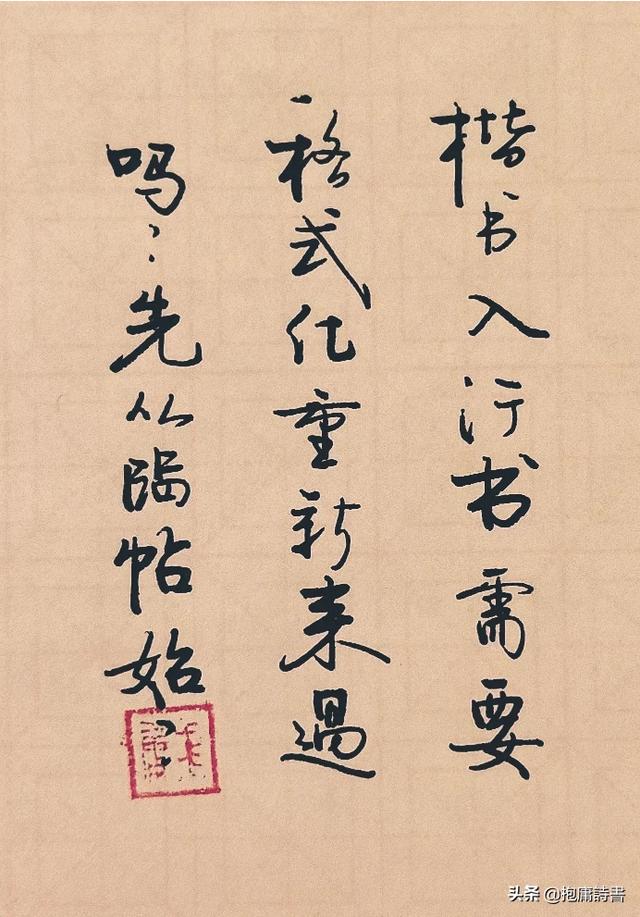 楷书入行书需要
格式化重新来過
吗？先从臨帖始：
头条 @抱庸詩書